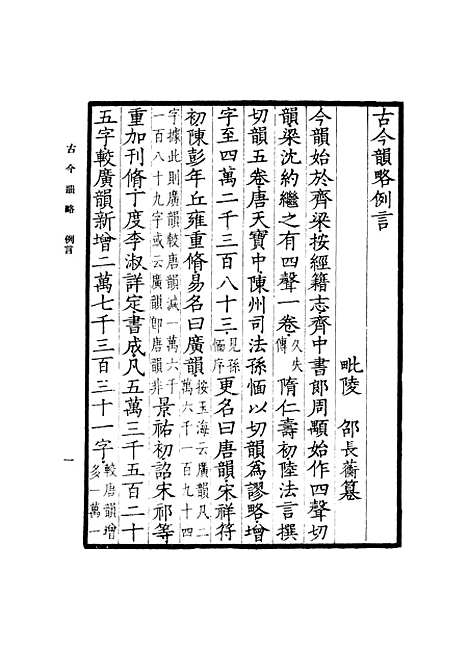 古今韻略例言
毗陵 邵長蘅纂
今韻始於齊梁按經籍志齊中書郎周顒始作四聲切
韻梁沈約繼之有四聲一卷久失傳隋仁壽初陸法言撰
切韻五卷唐天寶中陳州司法孫愐以切韻爲謬略增
字至四萬二千三百八十三見孫愐序更名曰唐韻宋祥符
初陳彭年丘雍重脩易名曰廣韻按玉海云廣韻凡二萬六千一百九十四
字據此則廣韻較唐韻減一萬六千一百八十九字或云廣韻卽唐韻非景祐初詔宋祁等
重加刊脩丁度李淑詳定書成凡五萬三千五百二十
五字較廣韻新增二萬七千三百三十一字較唐韻增多一萬一
古今韻略 例言
一